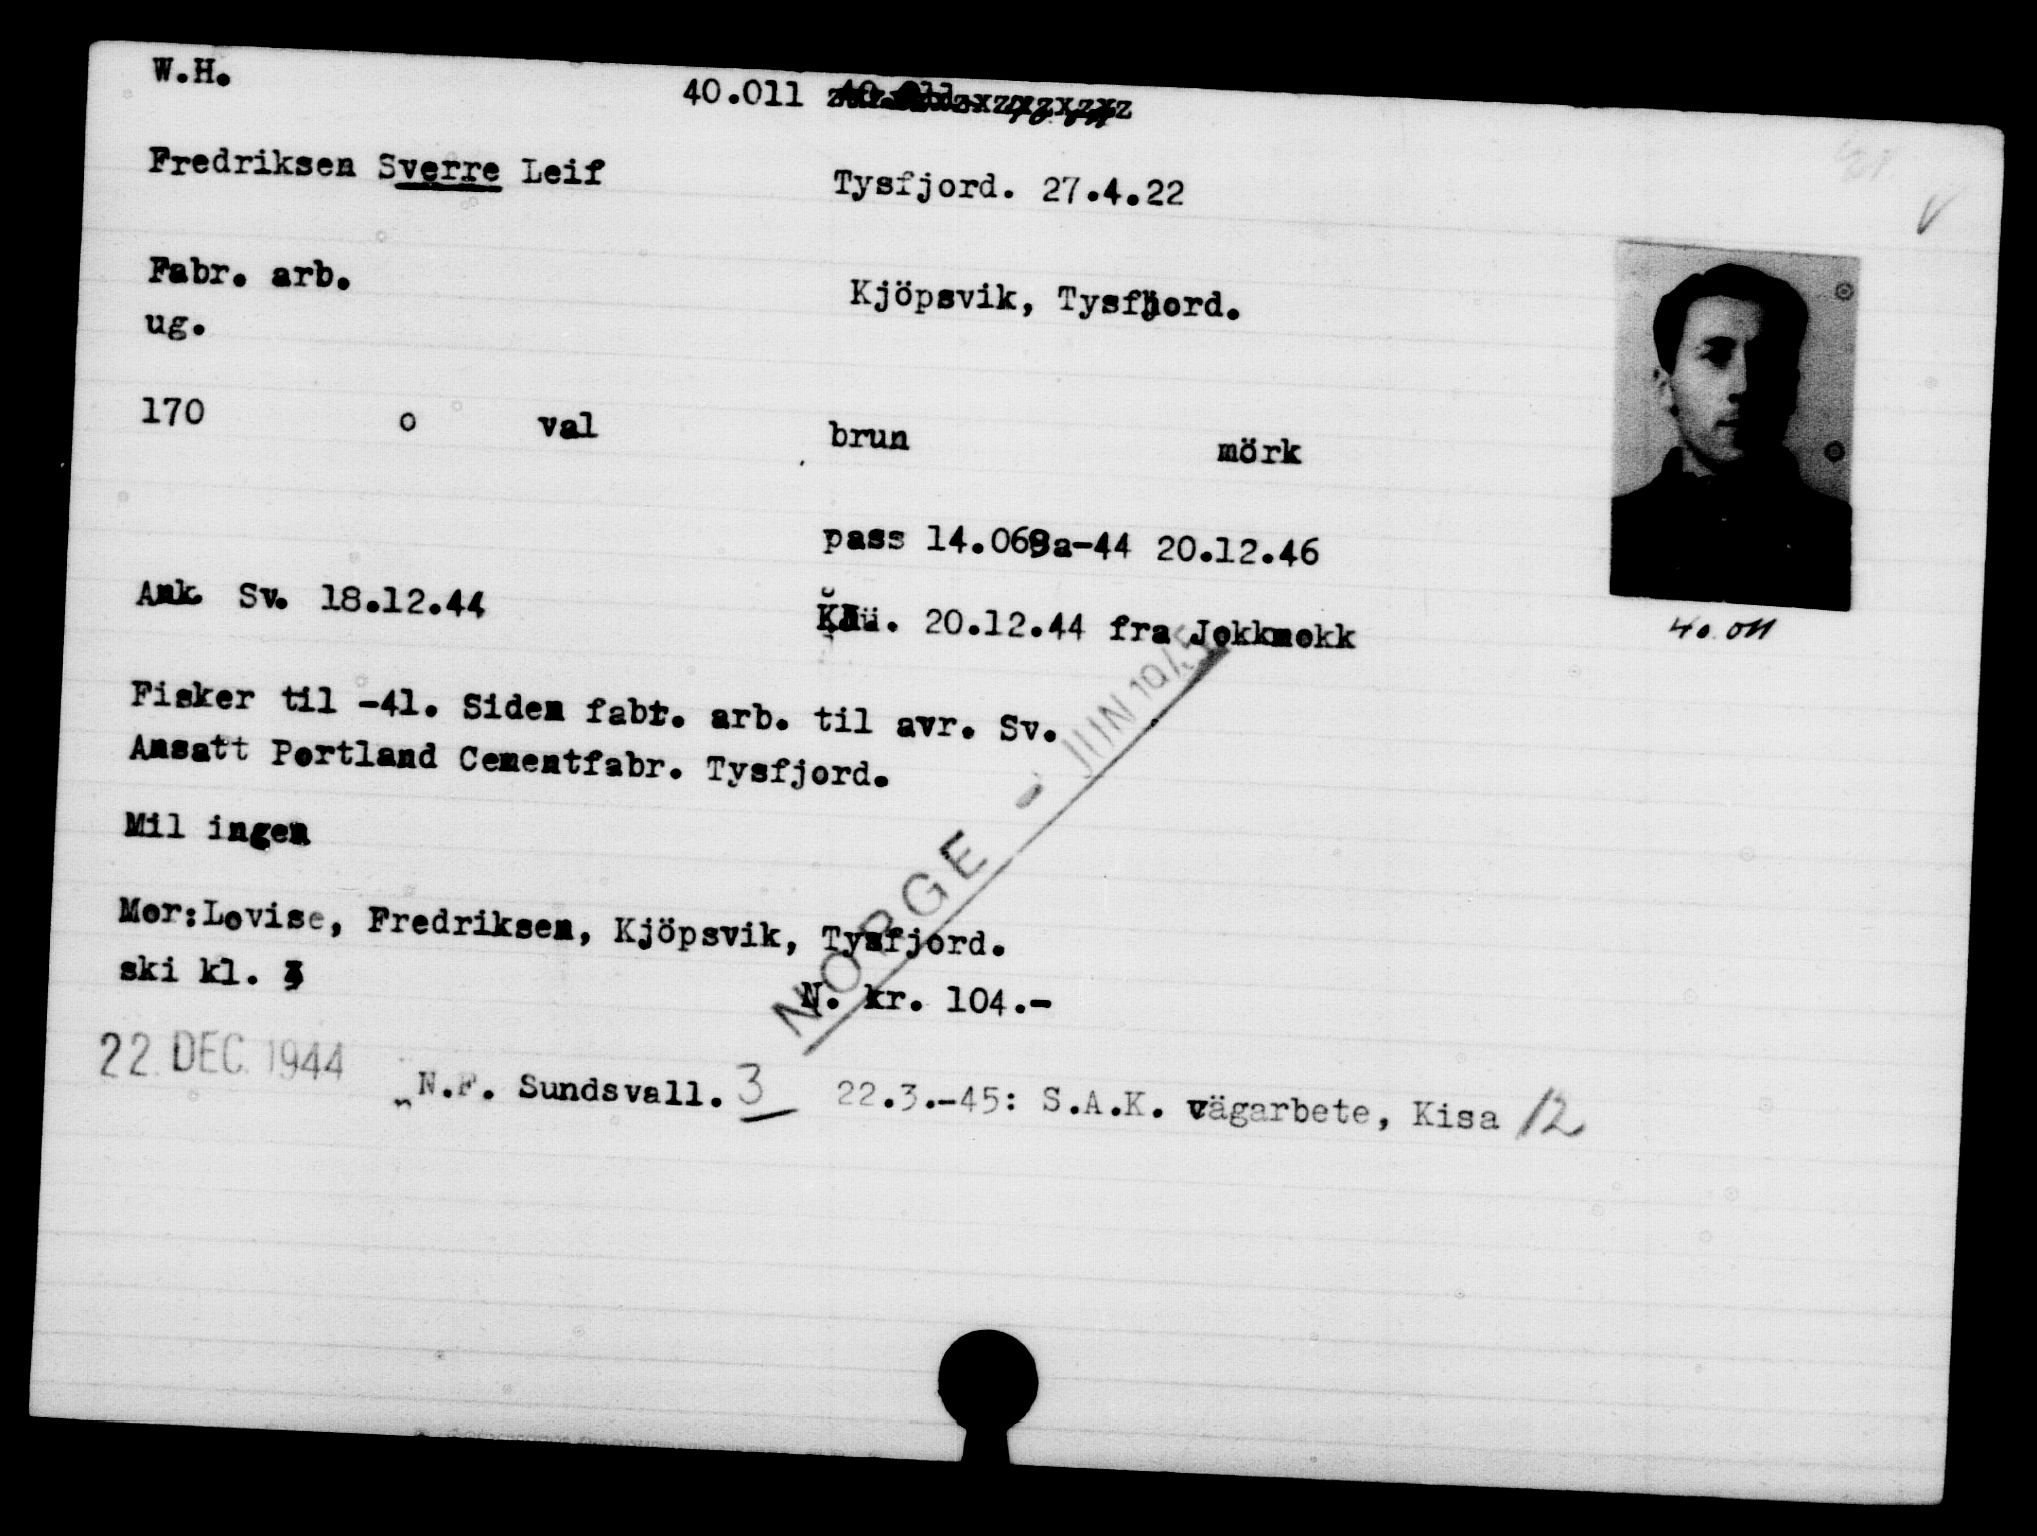 W.H.
40.011
Fredriksen Sverre Leif Tysfjord. 27.4.22
Fabr. arb. Kjöpsvik, Tysfjord.
ug.
170 o val brun mörk
pass 14.069a-44 20.12.46
Ank. Sv. 18.12.44 20.12.44 fra Jokkmokk
40.011
Fisker til -41. Siden fabr. arb. til avr. Sv.
Ansatt Portland Cementfabr. Tysfjord.
Mil ingen
Mor:Lovise, Fredriksen, Kjöpsvik, Tysfjord.
ski kl. 3 N. kr. 104.-
NORGE - JUN 1945
22. DEC. 1944 N.F. Sundsvall. 3 22.3.-45: S.A.K. vägarbete, Kisa 12